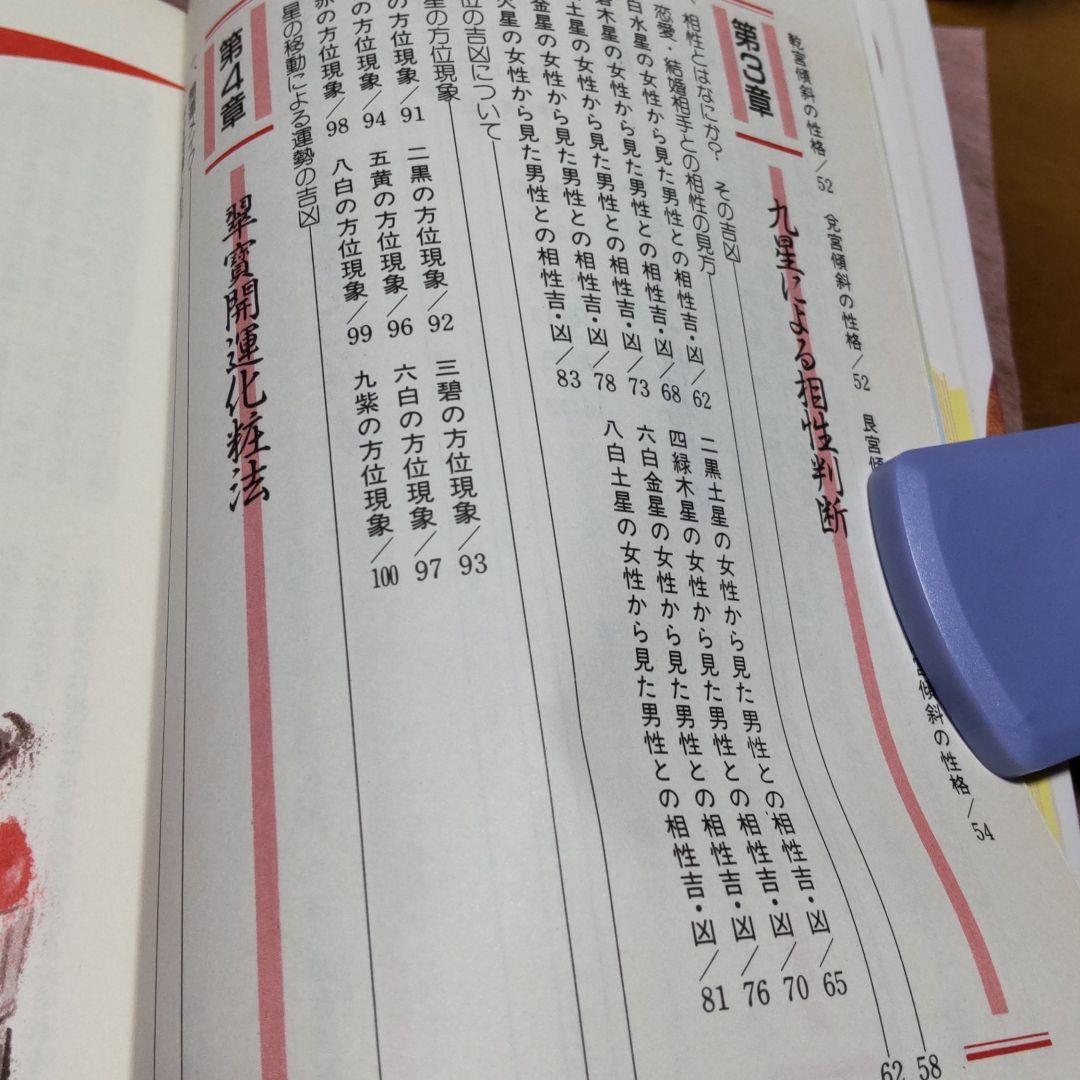 乾宮傾斜の性格/52 兌宮傾斜の性格/52 艮宮傾
傾斜の性格/54
第3章 九星による相性判断
相性とはなにか? その吉凶 58
恋愛・結婚相手との相性の見方 62
白水星の女性から見た男性との相性吉・凶/62 二黒土星の女性から見た男性との相性吉・凶/65
碧木星の女性から見た男性との相性吉・凶/68 四緑木星の女性から見た男性との相性吉・凶/70
土星の女性から見た男性との相性吉・凶/73 六白金星の女性から見た男性との相性吉・凶/76
金星の女性から見た男性との相性吉・凶/78 八白土星の女性から見た男性との相性吉・凶/81
火星の女性から見た男性との相性吉・凶/83
位の吉凶について
星の方位現象
の方位現象/91 二黒の方位現象/92 三碧の方位現象/93
の方位現象/94 五黄の方位現象/96 六白の方位現象/97
赤の方位現象/98 八白の方位現象/99 九紫の方位現象/100
星の移動による運勢の吉凶
第4章 翠寶開運化粧法